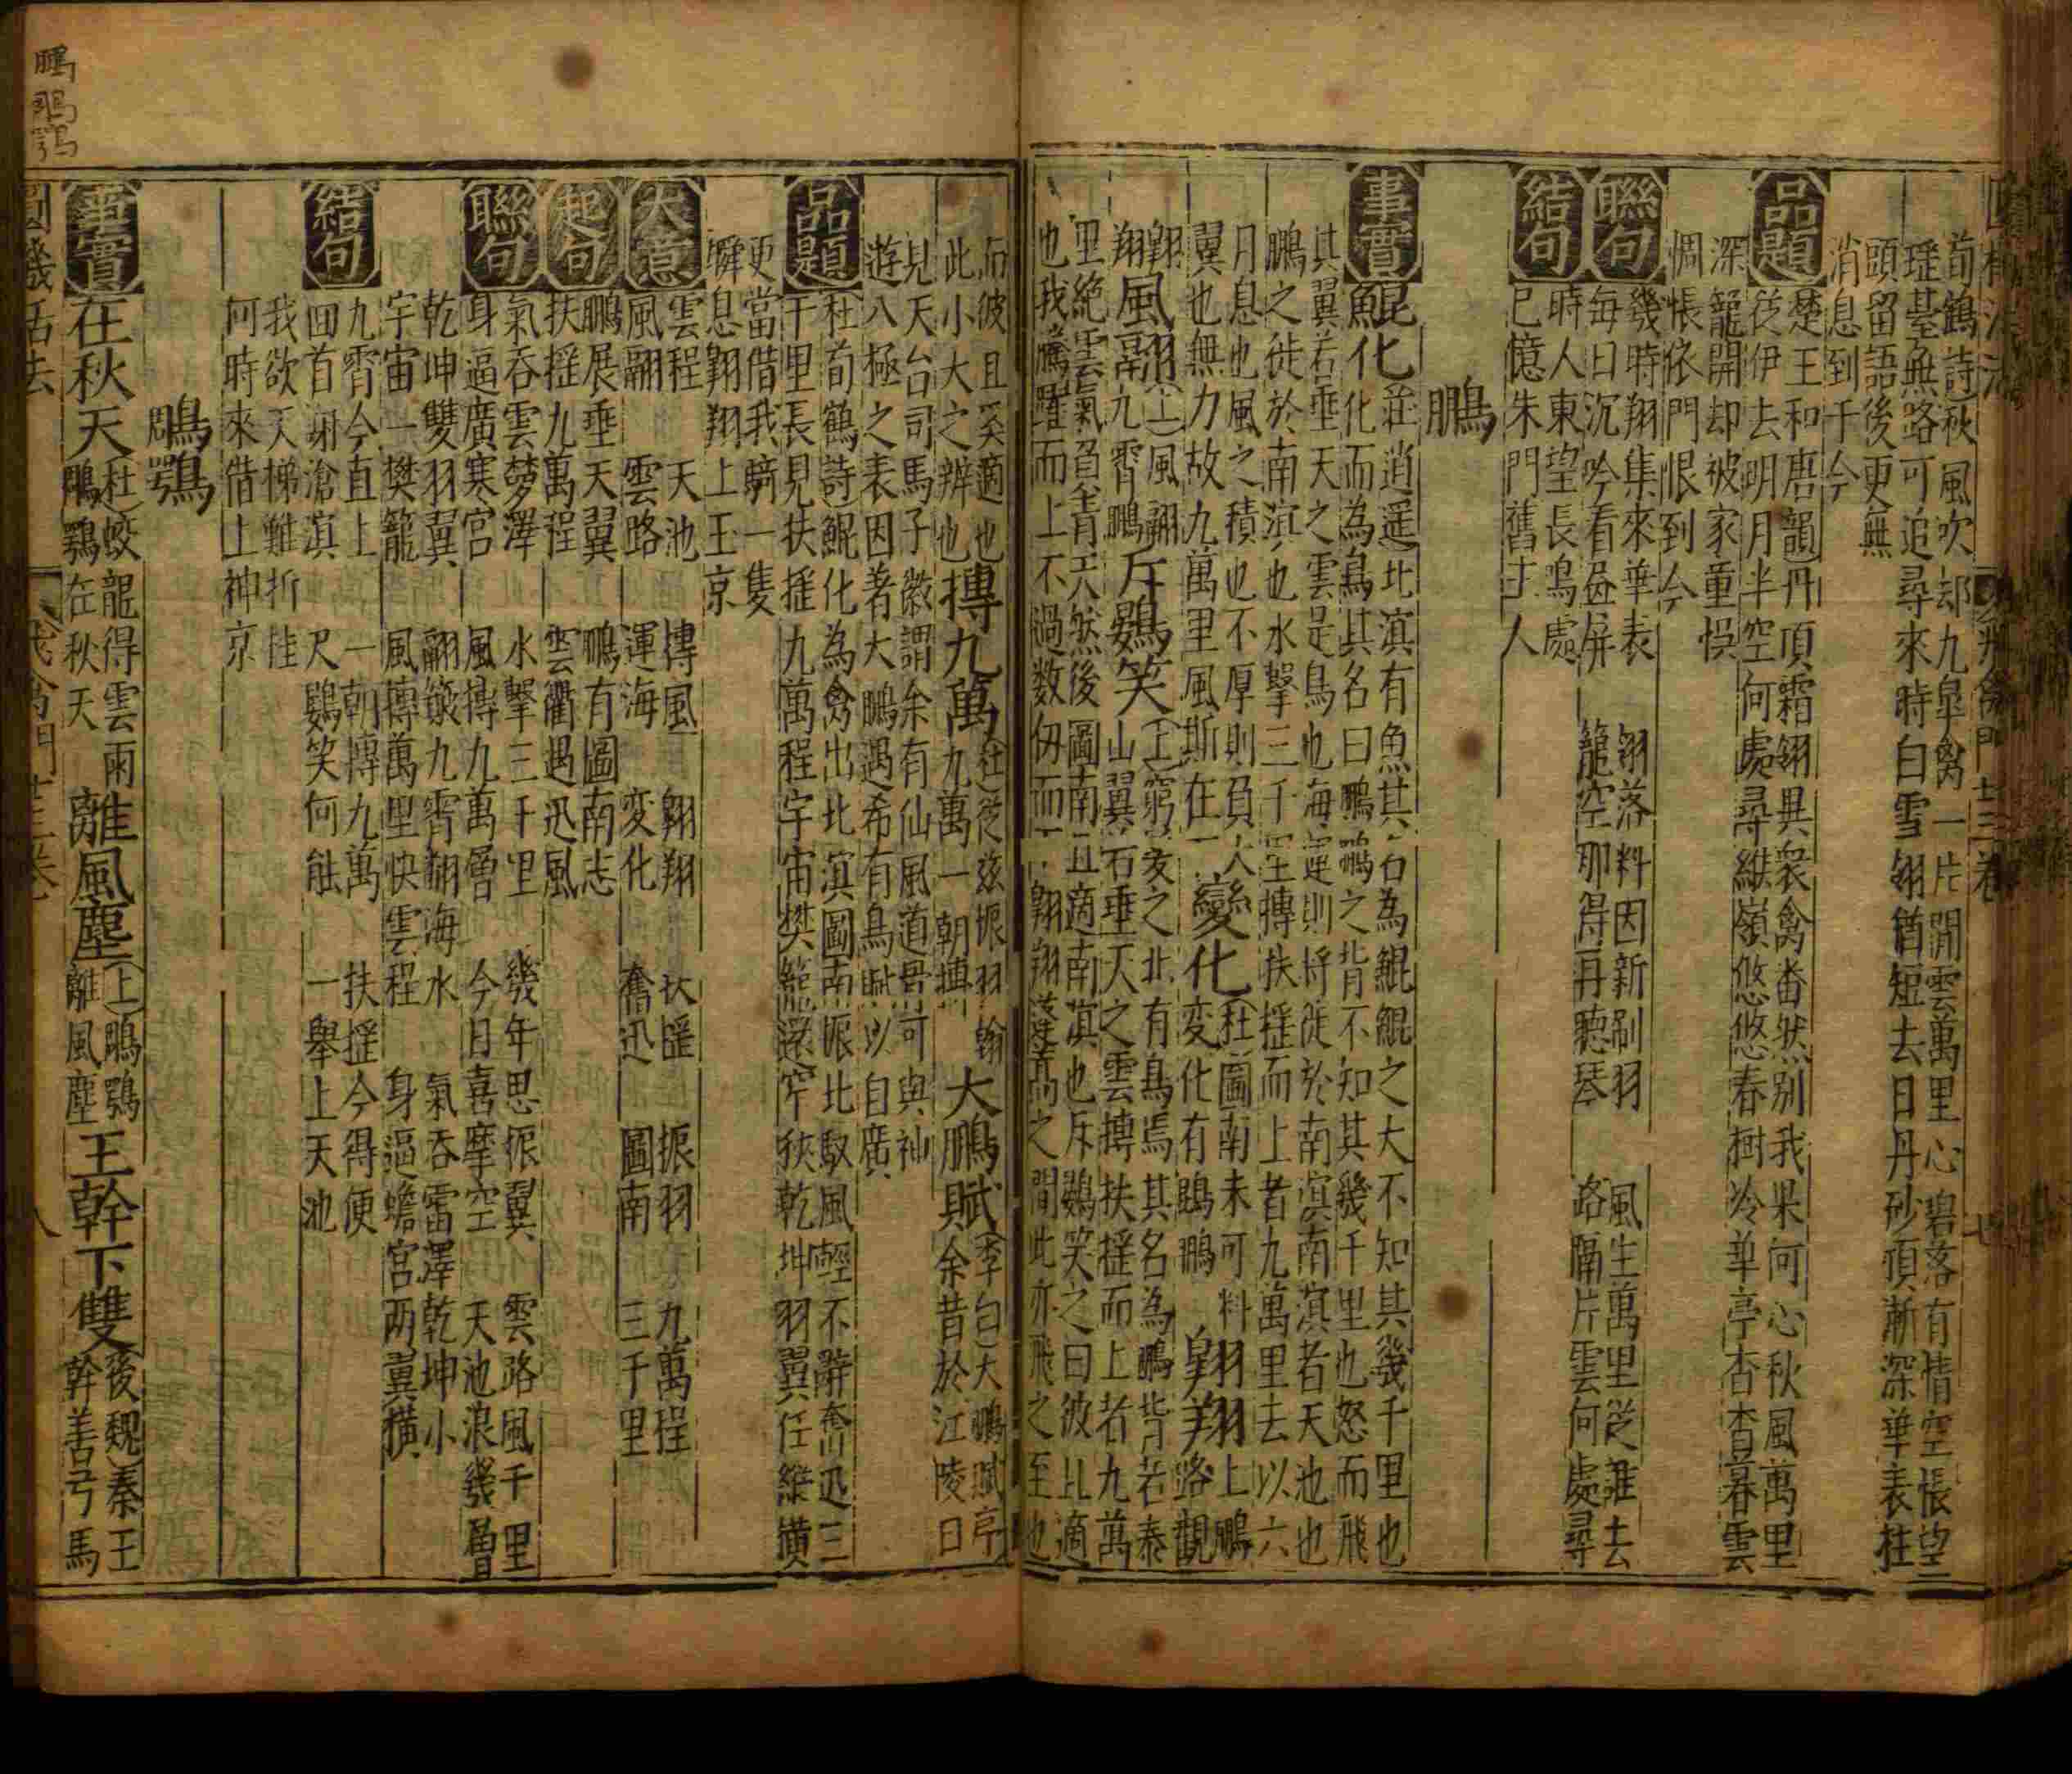 荀鶴詩秋風吹却九皐禽一片閒雲萬里心碧落有情空悵望
瑶臺無路可追尋來時白雪翎猶短去日丹砂頂漸深華表柱
頭留語後更無
消息到千今
品題
楚王和唐韻丹頂霜翎異衆禽畨然别我果何心秋風萬里
從伊去明月半空何處尋緱嶺悠悠春樹冷華亭杳杳暮雲
深籠開却被家童悞
惆悵依門恨到今
聯句
幾時翔集來華表 翎落料因新剧羽 風生萬里從誰去
每日沉吟看昼屏 籠空那得再聽琴 路隔片雲何處尋
結句
時人東望長鳴處
已憶朱門舊主人
鵬
事實
鯤化
莊逍遥北溟有魚其名為鯤鯤之大不知其幾千里也
化而為鳥其名曰鵬鵬之背不知其幾千里也怒而飛
其翼若垂天之雲是鳥也海運則將徙於南溟南溟者天池也
鵬之徙於南溟也水擊三千里摶扶摇而上者九萬里去以六
月息也風之積也不厚則負大
翼也無力故九萬里風斯在下
變化
杜圖南未可料
変化有鵾鵬
翱翔
上鵬
路觀
翱
翔
風翮
上風翮
九霄鵬
斥鷃笑
上窮髪之北有鳥焉其名為鵬背若泰
山翼若垂天之雲摶扶摇而上者九萬
里絶雲氣負青天然後圖南且適南溟也斥鷃笑之曰彼且適
也我騰躍而上不過数仞而下翱翔蓬蒿之間此亦飛之至也
而彼且奚適也
此小大之辨也
摶九萬
杜從兹振羽翰
九萬一朝摶
大鵬賦
李白大鵬賦序
余昔於江陵日
見天台司馬子徽謂余有仙風道骨可與神
遊八極之表因著大鵬遇希有鳥賦以自廣
品題
杜荀鶴詩鯤化為禽出北溟圖南振北馭風輕不辭奮迅三
千里長見扶摇九萬程宇宙樊籠遂窄狹乾坤羽翼任縱横
更當借我騎一隻
瞬息翱翔上玉京
大意
雲程 天池 摶風 翱翔 扶摇 振羽 九萬程
風翮 雲路 運海 変化 奮迅 圖南 三千里
起句
鵬展垂天翼 鵬有圖南志
扶摇九萬程 雲衢遇迅風
聯句
氣吞雲夢澤 水擊三千里 幾年思振翼 雲路風千里
身逼廣寒宫 風摶九萬層 今日喜摩空 天池浪幾層
乾坤雙羽翼 翮籋九霄翻海水 氣吞雷澤乾坤小
宇宙一樊籠 風摶萬里快雲程 身逼蟾宫両翼横
結句
九霄今直上 一朝摶九萬 扶摇今得便
回首謝滄溟 尺鷃笑何能 一舉上天池
我欲天梯難折桂
何時來借上神京
鵰鶚
事實
在秋天
杜蛟龍得雲雨
鵰鶚在秋天
離風塵
上鵰鶚
離風塵
王幹下雙
後魏秦王
幹善弓馬
八
鵰
鵰
鶚